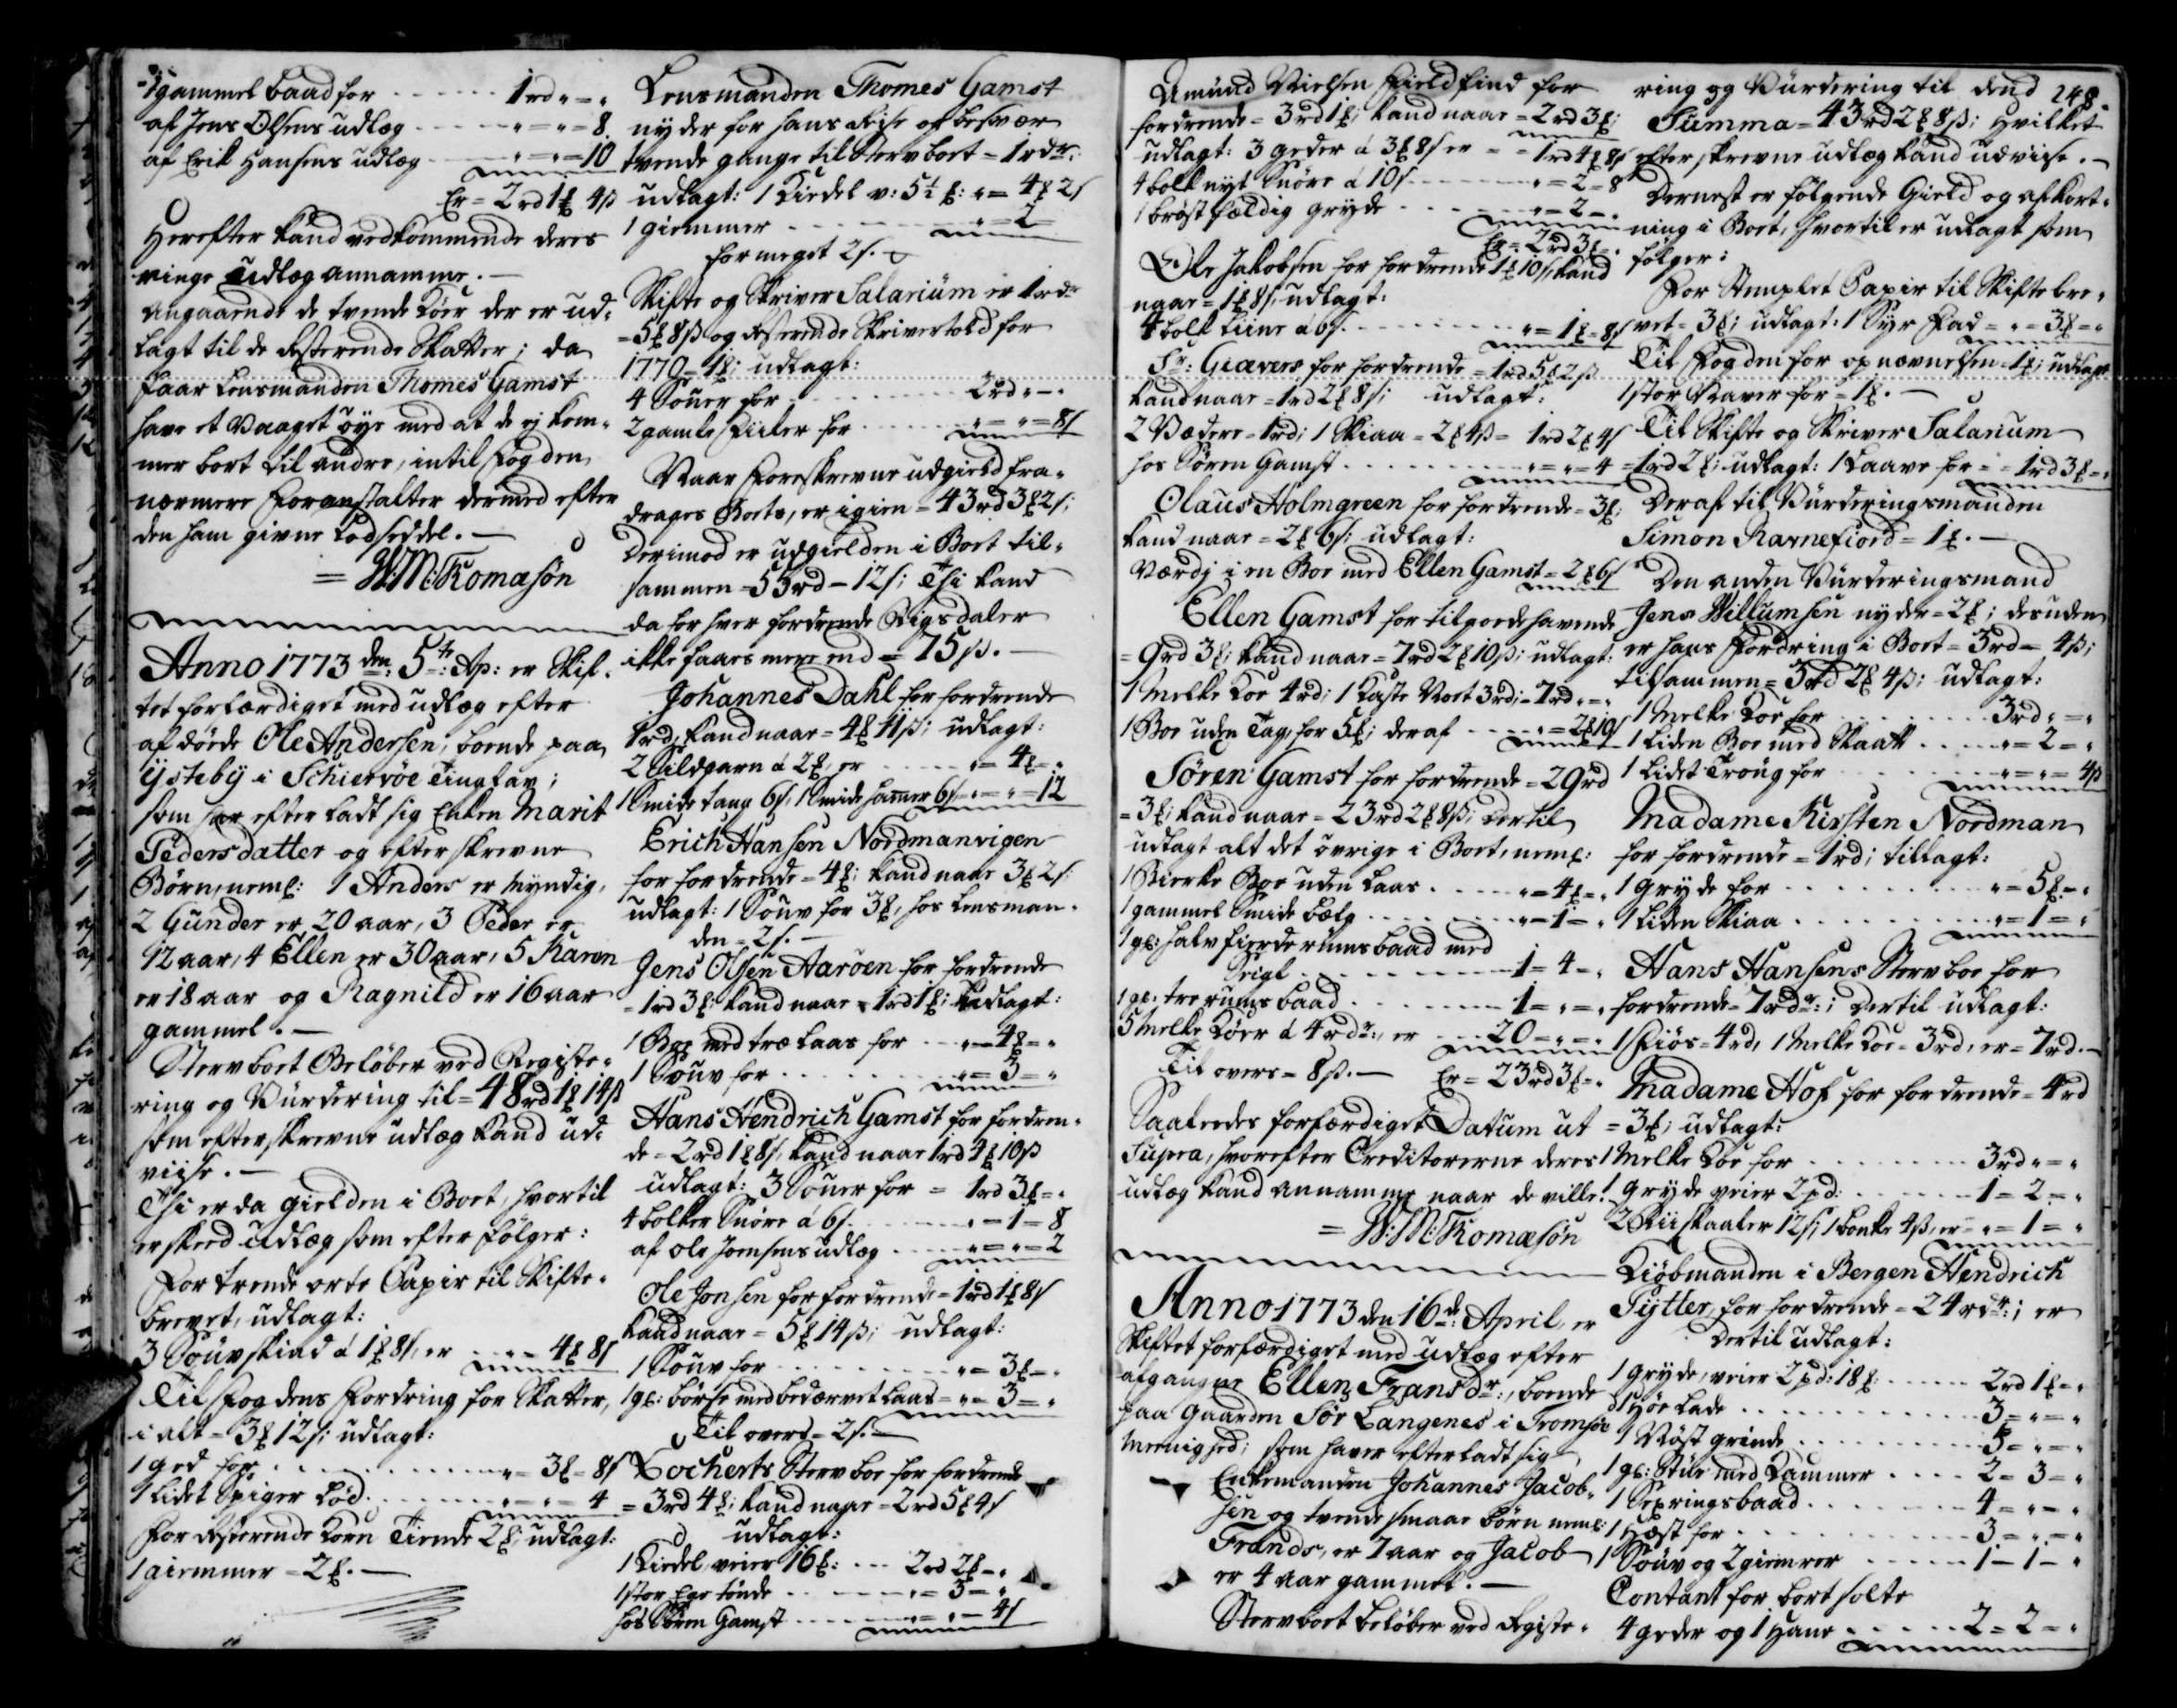 1 gammel baad for ... 1 rd " = "
af Jens Olsens udlæg ... " = " = 8.
af Erik Hansens udlæg ... " = " = 10
Er = 2 rd 1 ₰ 4 ß
Herefter kand vedkommende deres
udlæg annamme. —
Angaaende de tvende Kiør der er ud=
lagt til de resterende Skatter; da
faar Lensmanden Thomes Gamst
have et Vaaget øye med at de ej kom=
mer bort til andre, intil Fogden
nærmere foranstalter dermed efter
den ham givne Lodseddel. —
= W: M: Thomæsön
Anno 1773 den 5te: Ap: er Skif=
tet forfærdiget med udlæg efter
afdøde Ole Andersen, boende paa
Ÿstebÿ i Schiervöe Tinglav;
som har efterladt sig Enken Marit
Pedersdatter og efterskrevne
Børn, neml: 1 Anders er myndig,
2 Gunder er 20 aar, 3 Peder er
12 aar, 4 Ellen er 30 aar, 5 Karen
er 18 aar og Ragnild er 16 aar
gammel. —
Stervboet Beløber ved Registe=
ring og Vurdering til = 48 rd 1 ₰ 14 ß
som efterskrevne udlæg kand ud=
viise. —
Thi er da gielden i Boet, hvortil
er skeed udlæg som efter følger:
For trende orts Papir til Skifte=
brevet, udlagt:
3 Souvskind á 1 ₰ 8 ß, er ... " = 4 ₰ 8 ß
Til Fogdens Fordring for Skatter,
i alt = 3 ₰ 12 ß; udlagt:
1 ged for ... " = 3 ₰ = 8 ß
1 lidet Spiger Lod ... " = " = 4
For resterende Korn Tiende 2 ₰; udlagt:
1 giemmer = 2 ₰. —
Lensmanden Thomes Gamst
nyder for hans Reise og besvær
tvende gange til Stervboet = 1 rdr:
udlagt: 1 Kiedel v: 5½ ₰: " = 4 ₰ 2 ß
1 giemmer ... " = 2 =
for meget 2 ß.
Skifte og Skriver Salarium er 1 rdr
= 5 ₰ 8 ß og resterende Skrivertold for
1770 = 1 ₰; udlagt:
4 Souer for ... 2 rd " = "
2 gamle for ... " = " = 8 ß
Naar foreskrevne udgield fra=
drages Boets, er igien = 43 rd 3 ₰ 2 ß;
Derimod er udgielden i Boet til=
sammen = 55 rd - 12 ß; Thi kand
da for hver fordrende Rigsdaler
ikke faaes mere end = 75 ß. —
Johannes Dahl for fordrende
1 rd, kand naae = 4 ₰ 11 ß; udlagt:
2 Sildgarn á 2 ₰, er ... " = 4 ₰ = "
1 Smidetang 6 ß, 1 Smidehammer 6 ß = " = " = 12
Erich Hansen Nordmanvigen
for fordrende = 4 ₰; kand naae 3 ₰ 2 ß:
udlagt: 1 Souv for 3 ₰, hos Lensman=
den = 2 ß. —
Jens Olsen Aaröen for fordrende
= 1 rd 3 ₰: kand naae = 1 rd 1 ₰: udlagt:
1 Boe med træ laas for ... " = 4 ₰ = "
1 Souv for ... " = 3 = "
Hans Hendrich Gamst for fordren=
de = 2 rd 1 ₰ 8 ß, kand naae 1 rd 4 ₰ 10 ß
udlagt: 3 Souer for = 1 rd 3 ₰ = "
4 bolker Snöre á 6 ß ... " = 1 = 8
af Ole Joensens udlæg ... " = " = 2
Ole Jonsen for fordrende = 1 rd 1 ₰ 8 ß
kand naae = 5 ₰ 14 ß; udlagt:
1 Souv for ... " = 3 ₰ = "
1 gl: börse med bedærvet laas = " = 3 = "
Til overs = 2 ß. —
Locherts Stervboe for fordrende
= 3 rd 4 ₰: kand naae = 2 rd 5 ₰ 4 ß
udlagt:
1 Kiedel, veier 16 ₰: ... 2 rd 2 ₰ = "
1 stor Ege tønde ... " = 3 = "
hos Sören Gamst ... " = " = 4 ß
Amund Nielsen Fieldfind for
fordrende = 3 rd 1 ₰; kand naae = 2 rd 3 ₰;
udlagt: 3 geder á 3 ₰ 8 ß er = 1 rd 4 ₰ 8 ß
4 bolk nyt Snöre á 10 ß ... " = 2 = 8
1 bröstfældig gryde ... " = 2 = "
Er = 2 rd 3 ₰ = "
Ole Jakobsen for fordrende 1 ₰ 10 ß, kand
naae = 1 ₰ 8 ß, udlagt:
4 bolk Liine á 6 ß ... " = 1 ₰ = 8 ß
Sr: Giævers for fordrende = 1 rd 5 ₰ 2 ß
kand naae = 1 rd 2 ₰ 8 ß; udlagt:
2 Vædere = 1 rd; 1 Skiaa = 2 ₰ 4 ß = 1 rd 2 ₰ 4 ß
hos Sören Gamst ... " = " = 4
Olaus Holmgreen for fordrende = 3 ₰:
kand naae = 2 ₰ 6 ß: udlagt:
Værdj i en Boe med Ellen Gamst = 2 ₰ 6 ß
Ellen Gamst for tilgodehavende
= 9 rd 3 ₰; kand naae = 7 rd 2 ₰ 10 ß; udlagt:
1 Melke Koe 4 rd; 1 Kaste Noet 3 rd; = 7 rd " = "
1 Boe uden Tag, for 5 ₰; deraf ... " = 2 ₰ 10 ß
Sören Gamst for fordrende = 29 rd
= 3 ₰; kand naae = 23 rd 2 ₰ 8 ß; dertil
udlagt alt det övrige i Boet, neml:
1 Bierke Boe uden Laas ... " = 4 ₰ = "
1 gammel Smide bælg ... " = 1 = "
1 gl: halv fierderums baad med
Seigl ... 1 = 4 = "
1 gl: trerums baad ... 1 = " = "
5 Melke Kiøer á 4 rdr:, er ... 20 = " = "
Til overs = 8 ß. — Er = 23 rd 3 ₰ = "
Saaledes forfærdiget Datum ut
Supra, hvorefter Creditorerne deres
udlæg kand annamme naar de ville.
= W: M: Thomæsön
Anno 1773 den 16de: April, er
Skiftet forfærdiget med udlæg efter
afgangne Ellen Fransdr:, boende
paa Gaarden Sør Langenes i Tromsøe
menighed; som haver efterladt sig
Enkemanden Johannes Jacob=
sen og tvende smaae børn neml:
Frands, er 7 aar og Jacob
er 4 aar gammel. —
Stervboet beløber ved Registe=
248.
ring og Vurdering til dend
Summa = 43 rd 2 ₰ 8 ß; Hvilket
efterskrevne udlæg kand udviise. —
Dernest er følgende Gield og afkort=
ning i Boet, hvortil er udlagt som
følger:
For Stemplet Papir til Skiftebre=
vet = 3 ₰; udlagt: 1 Syr Fad = " = 3 ₰ = "
Til Fogden for opnævnelsen = 1 ₰; udlagt
1 stor Naver for = 1 ₰. —
Til Skifte og Skriver Salarium
= 1 rd 2 ₰; udlagt: 1 Laave for = 1 rd 3 ₰ = "
Deraf til Vurderingsmanden
Simon Ravnefiord = 1 ₰. —
Den anden Vurderingsmand
Jens Willumsen nyder = 2 ₰; desuden
er hans fordring i Boet = 3 rd = 4 ß;
tilsammen = 3 rd 2 ₰ 4 ß; udlagt:
1 Melke Koe for ... 3 rd " = "
1 liden Boe med Skaatt ... " = 2 = "
1 lidet Troug for ... " = " = 4 ß
Madame Kirsten Nordman
for fordrende = 1 rd; tillagt:
1 gryde for ... " = 5 ₰ = "
1 liden Skiaa ... " = 1 = "
Hans Hansens Stervboe for
fordrende = 7 rdr:; dertil udlagt:
1 Fiös = 4 rd, 1 Melke Koe = 3 rd, er = 7 rd. —
Madame Hof for fordrende = 4 rd
= 3 ₰; udlagt:
1 Melke Koe for ... 3 rd " = "
1 gryde veier 2 pd: ... 1 = 2 = "
2 skaaler 12 ß; 1 bænke 4 ß, er = " = 1 = "
Kiøbmanden i Bergen Hendrich
Fÿtter, for fordrende = 24 rdr:; er
dertil udlagt:
1 gryde, veier 2 pd: 18 ₰: ... 2 rd 1 ₰ = "
1 Höe Lade ... 3 = " = "
1 Nöst grinde ... 5 = " = "
1 gl: Stue med Kammer ... 2 = 3 = "
1 Sexringsbaad ... 4 = " = "
1 Hest for ... 3 = " = "
1 Souv og 2 giemrer ... 1 = 1 = "
Contant for bort solte
4 geder og 1 Hane ... 2 = 2 = "